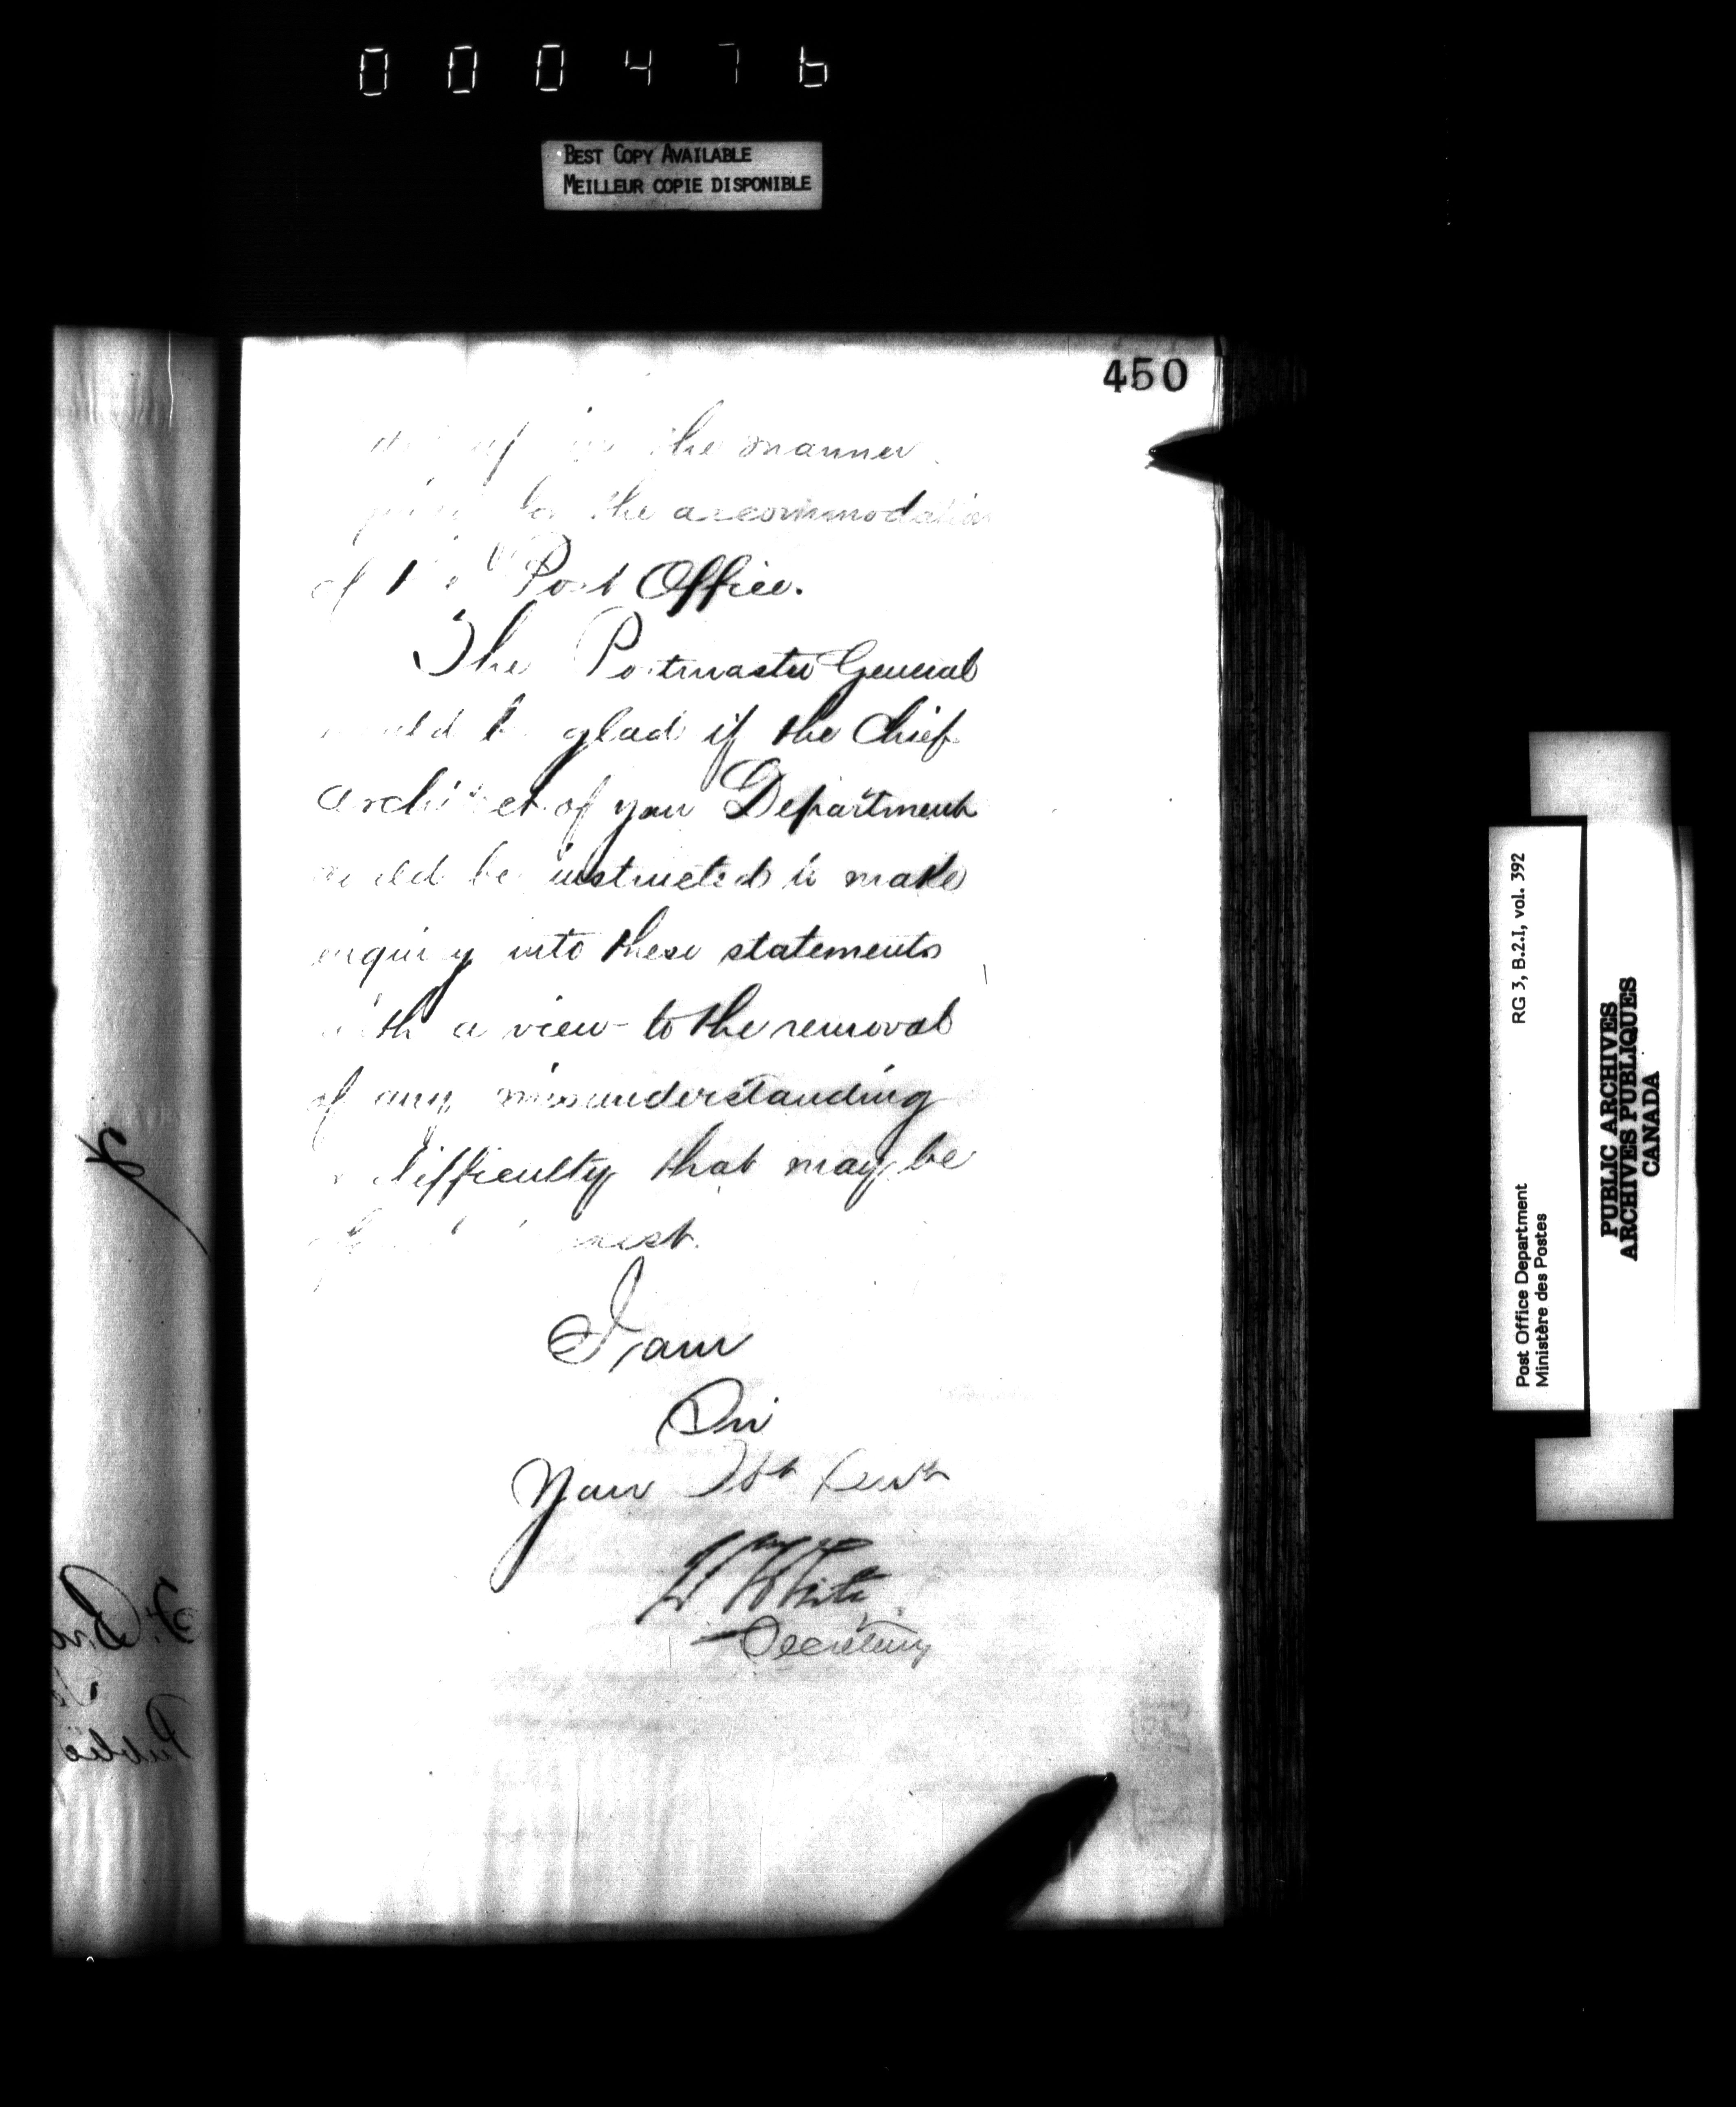 000476
BEST COPY AVAILABLE
MEILLEUR COPIE DISPONIBLE
450
the manner
the accommodation
of Post Office.
The Postmaster General
would be glad if the Chief
Architect of your Department
could be instructed to make
enquiry into these statements
with a view to the removal
of any misunderstanding
or difficulty that may be
I am
Sir
Your Obt Servt
W White
Secretary
Public
RG 3, B.2.I, vol. 392
Post Office Department
Ministère des Postes
PUBLIC ARCHIVES
ARCHIVES PUBLIQUES
CANADA